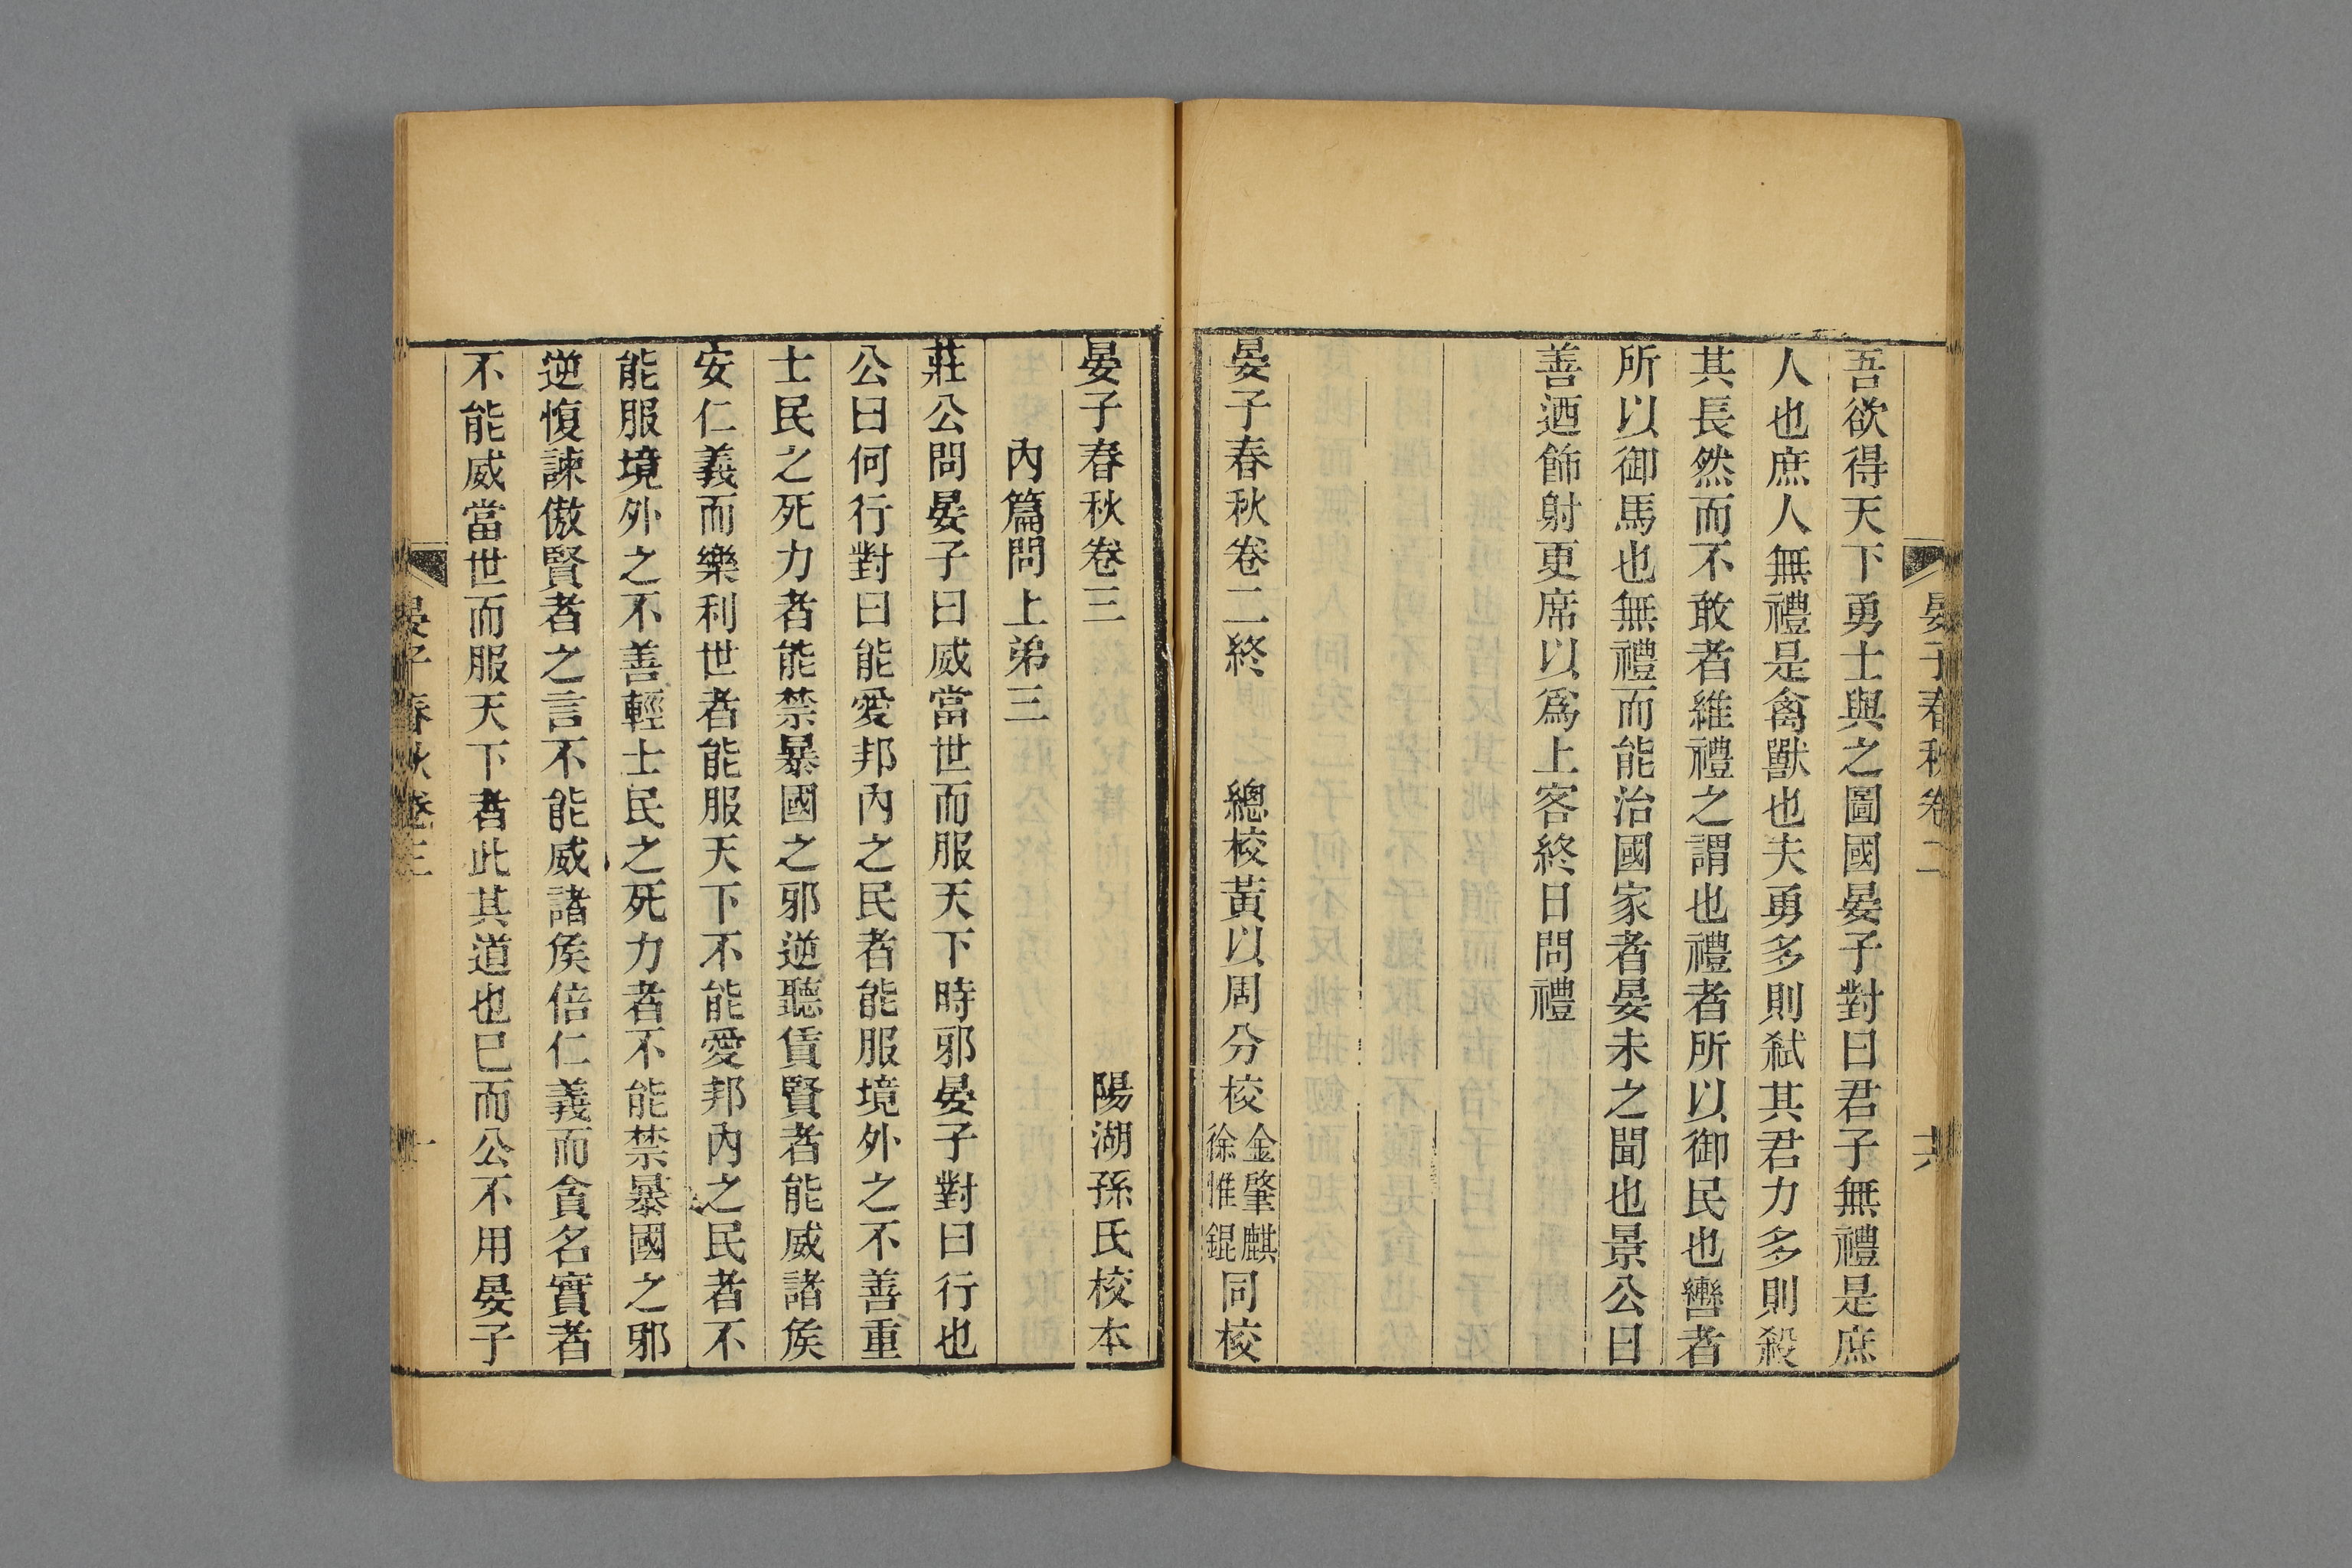 晏子春秋卷二
吾欲得天下勇士與之圖國晏子對曰君子無禮是庶
人也庶人無禮是禽獸也夫勇多則弑其君力多則殺
其長然而不敢者維禮之謂也禮者所以御民也轡者
所以御馬也無禮而能治國家者晏未之聞也景公曰
善迺飾射更席以爲上客終日問禮
晏子春秋卷二終
總校黃以周分校
金肇麒
徐惟錕
同校
晏子春秋卷三
陽湖孫氏校本
內篇問上弟三
莊公問晏子曰威當世而服天下時邪晏子對曰行也
公曰何行對曰能愛邦內之民者能服境外之不善重
士民之死力者能禁暴國之邪逆聽賃賢者能威諸矦
安仁義而樂利世者能服天下不能愛邦內之民者不
能服境外之不善輕士民之死力者不能禁暴國之邪
逆愎諫傲賢者之言不能威諸矦倍仁義而貪名實者
不能威當世而服天下者此其道也已而公不用晏子
晏子春秋卷三
一